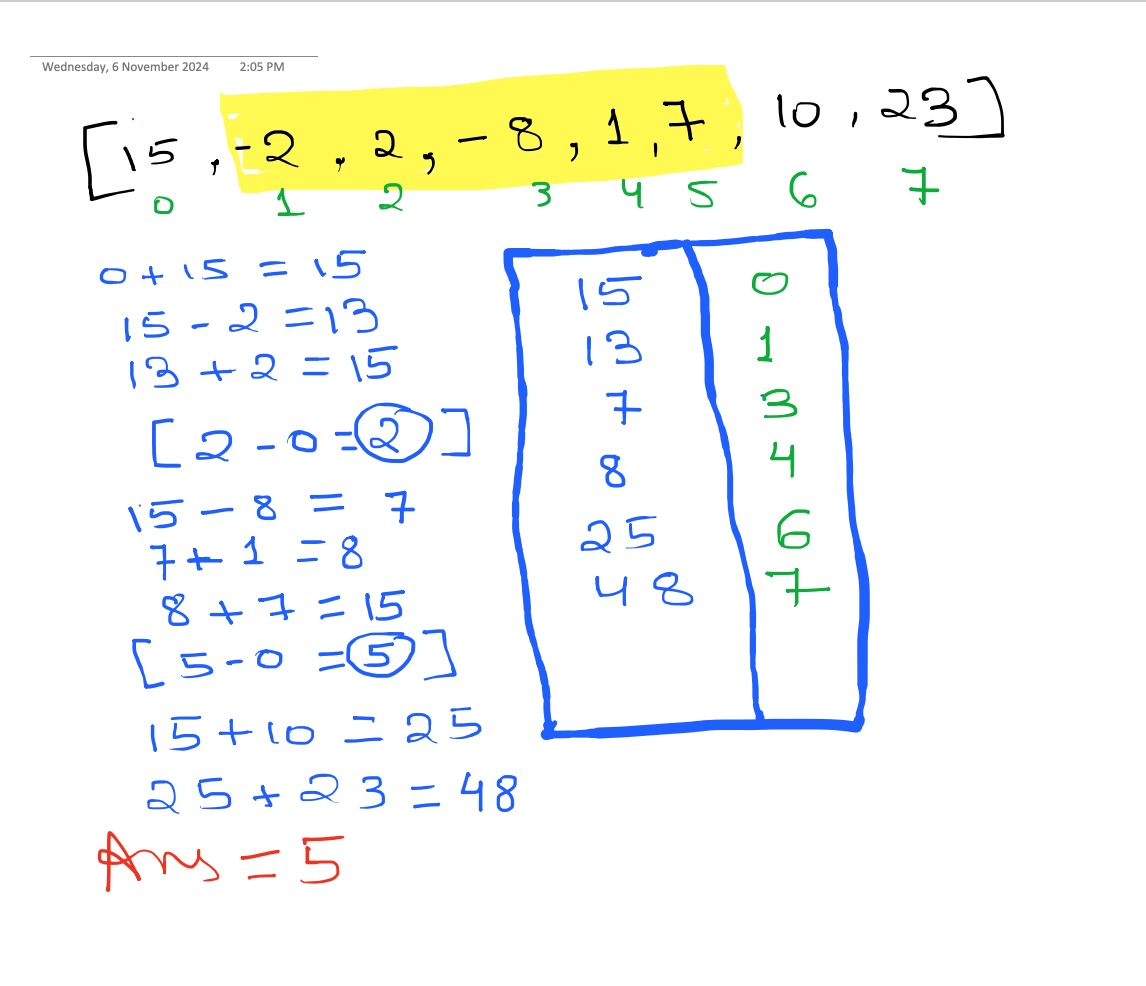 Wednesday, 6 November 2024 2:05 PM
[15, -2, 2, -8, 1, 7, 10, 23]
0 1 2 3 4 5 6 7
0 + 15 = 15
15 - 2 = 13
13 + 2 = 15
[2 - 0 = 2]
15 - 8 = 7
7 + 1 = 8
8 + 7 = 15
[5 - 0 = 5]
15 + 10 = 25
25 + 23 = 48
Ans = 5
15 0
13 1
7 3
8 4
25 6
48 7